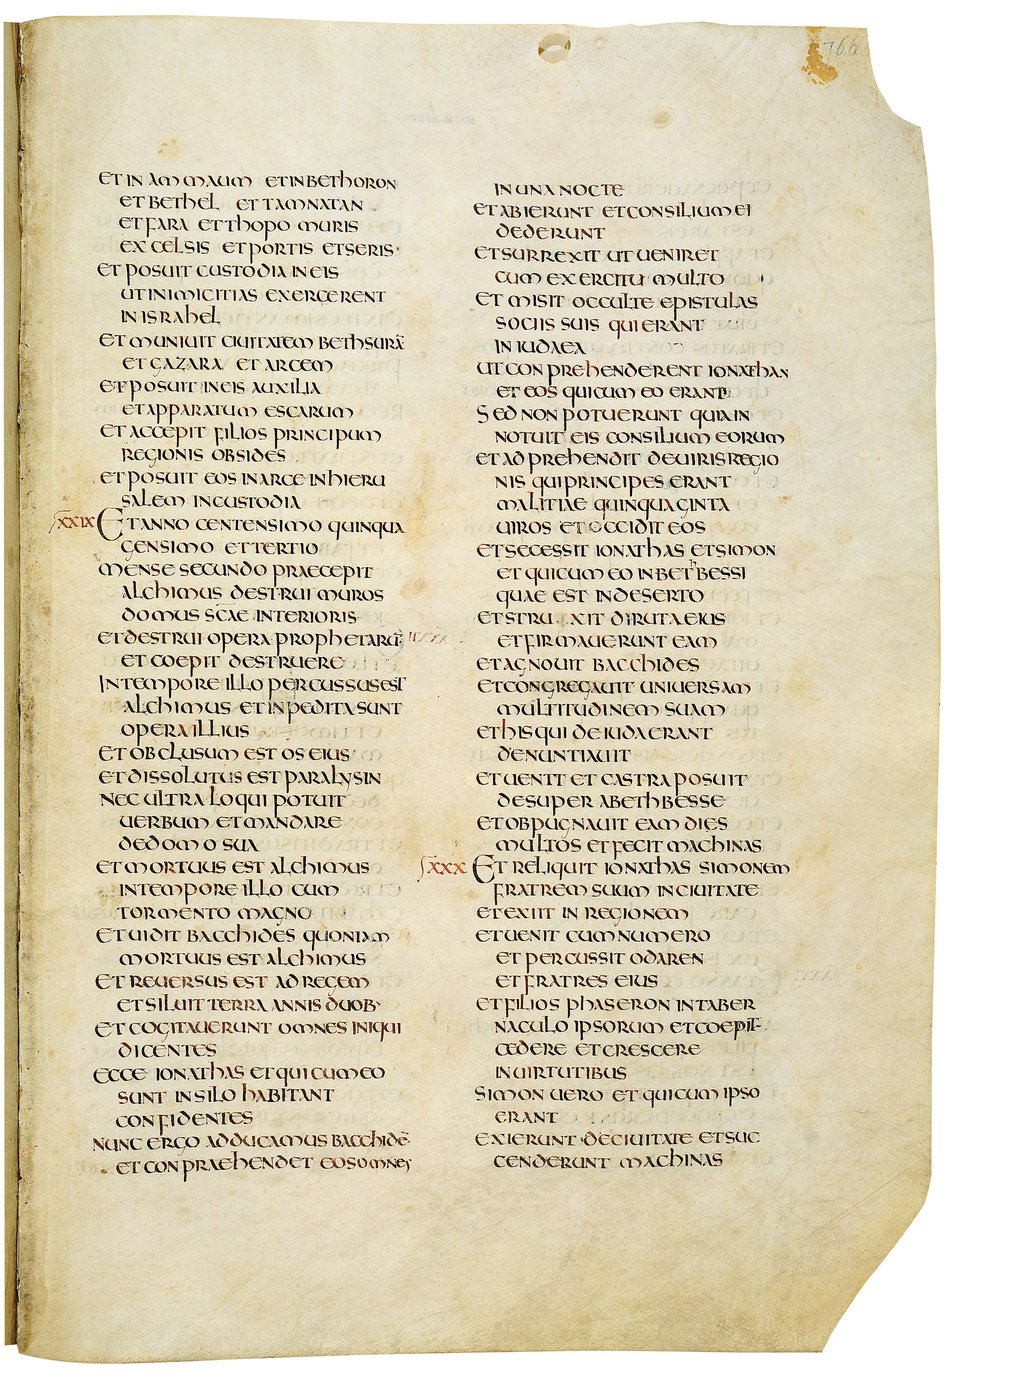 766
ET IN AMMAUM ET IN BETHORON
ET BETHEL ET TAMNATAN
ET FARA ET THOPO MURIS
EXCELSIS ET PORTIS ET SERIS
ET POSUIT CUSTODIA IN EIS
UT INIMICITIAS EXERCERENT
IN ISRAHEL
ET MUNIUIT CIUITATEM BETHSURĀ
ET GAZARA ET ARCEM
ET POSUIT IN EIS AUXILIA
ET APPARATUM ESCARUM
ET ACCEPIT FILIOS PRINCIPUM
REGIONIS OBSIDES
ET POSUIT EOS IN ARCE IN HIERU
SALEM IN CUSTODIA
XXIX ET ANNO CENTENSIMO QUINQUA
GENSIMO ET TERTIO
MENSE SECUNDO PRAECEPIT
ALCHIMUS DESTRUI MUROS
DOMUS SCAE INTERIORIS
ET DESTRUI OPERA PROPHETARŪ
ET COEPIT DESTRUERE
IN TEMPORE ILLO PERCUSSUS EST
ALCHIMUS ET INPEDITA SUNT
OPERA ILLIUS
ET OBCLUSUM EST OS EIUS
ET DISSOLUTUS EST PARALYSIN
NEC ULTRA LOQUI POTUIT
UERBUM ET MANDARE
DE DOMO SUA
ET MORTUUS EST ALCHIMUS
IN TEMPORE ILLO CUM
TORMENTO MAGNO
ET UIDIT BACCHIDES QUONIAM
MORTUUS EST ALCHIMUS
ET REUERSUS EST AD REGEM
ET SILUIT TERRA ANNIS DUOB·
ET COGITAUERUNT OMNES INIQUI
DICENTES
ECCE IONATHAS ET QUI CUM EO
SUNT IN SILO HABITANT
CONFIDENTES
NUNC ERGO ADDUCAMUS BACCHIDĒ
ET CONPRAEHENDET EOS OMNES
IN UNA NOCTE
ET ABIERUNT ET CONSILIUM EI
DEDERUNT
ET SURREXIT UT UENIRET
CUM EXERCITU MULTO
ET MISIT OCCULTE EPISTULAS
SOCIIS SUIS QUI ERANT
IN IUDAEA
UT CONPREHENDERENT IONATHAN
ET EOS QUI CUM EO ERANT
SED NON POTUERUNT QUIA IN
NOTUIT EIS CONSILIUM EORUM
ET ADPREHENDIT DE UIRIS REGIO
NIS QUI PRINCIPES ERANT
MALITIAE QUINQUAGINTA
UIROS ET OCCIDIT EOS
ET SECESSIT IONATHAS ET SIMON
ET QUI CUM EO IN BETHBESSI
QUAE EST IN DESERTO
ET STRUXIT DIRUTA EIUS
ET FIRMAUERUNT EAM
ET AGNOUIT BACCHIDES
ET CONGREGAUIT UNIUERSAM
MULTITUDINEM SUAM
ET HIS QUI DE IUDA ERANT
DENUNTIAUIT
ET UENIT ET CASTRA POSUIT
DESUPER A BETHBESSE
ET OBPUGNAUIT EAM DIES
MULTOS ET FECIT MACHINAS
XXX ET RELIQUIT IONATHAS SIMONEM
FRATREM SUUM IN CIUITATE
ET EXIIT IN REGIONEM
ET UENIT CUM NUMERO
ET PERCUSSIT ODAREN
ET FRATRES EIUS
ET FILIOS PHASERON IN TABER
NACULO IPSORUM ET COEPIT
CEDERE ET CRESCERE
IN UIRTUTIBUS
SIMON UERO ET QUI CUM IPSO
ERANT
EXIERUNT DE CIUITATE ET SUC
CENDERUNT MACHINAS